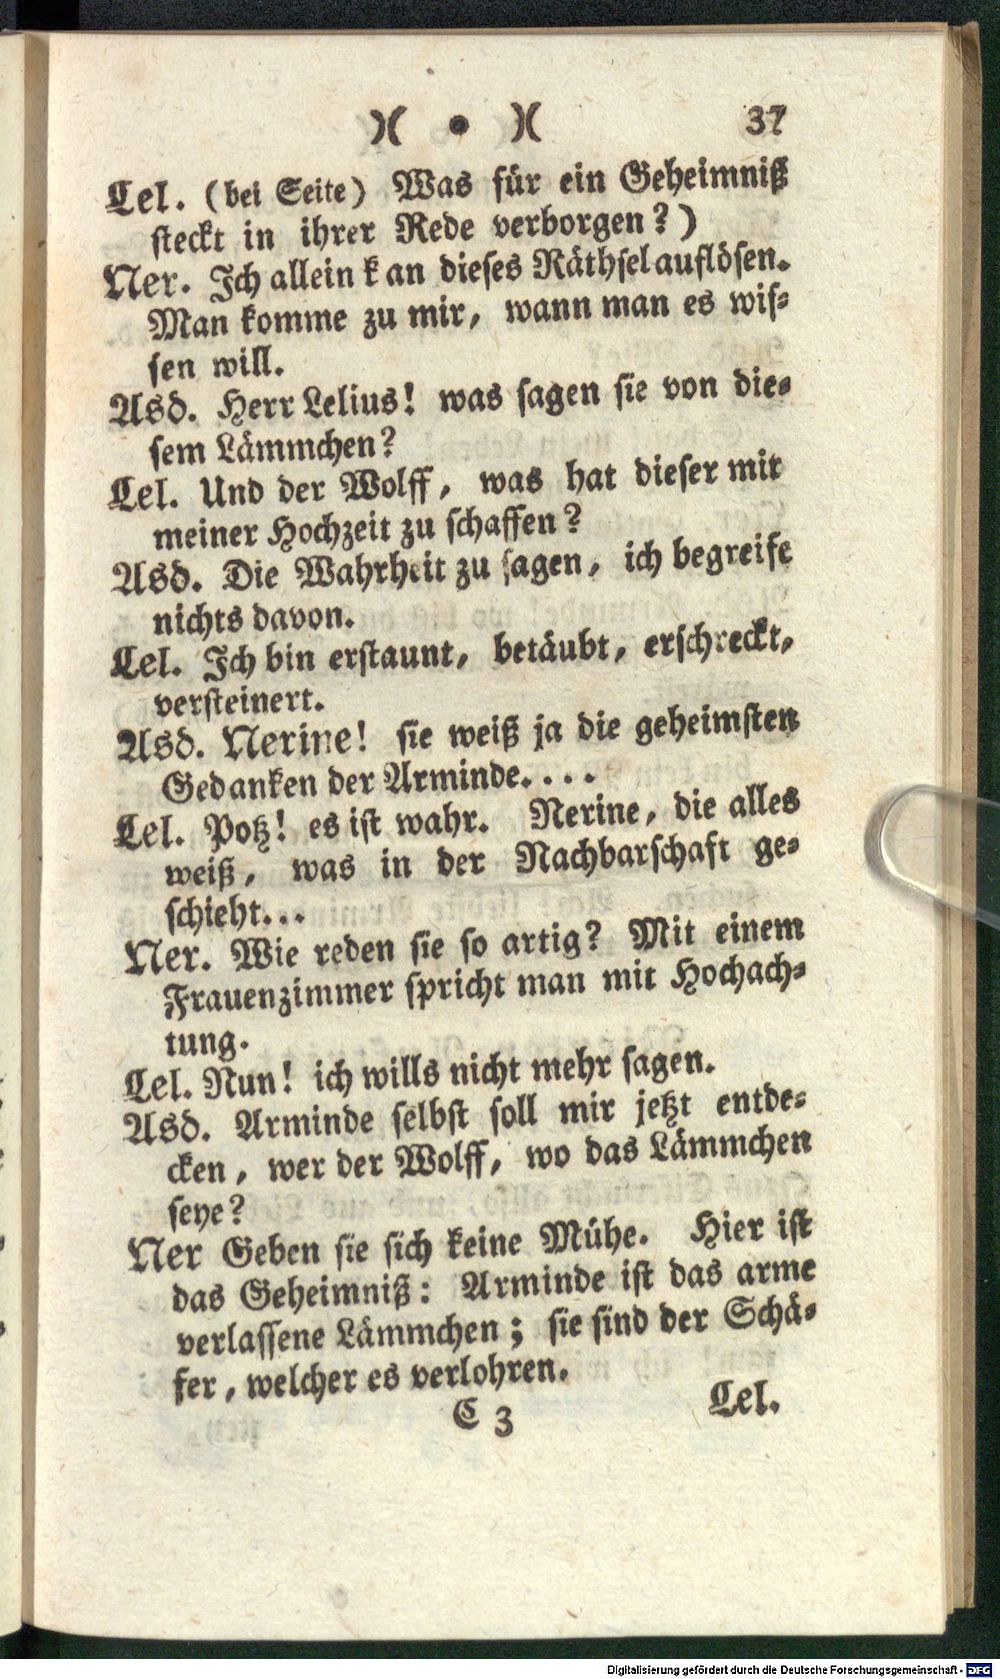 )( • )( 37
Lel. (bei Seite) Was für ein Geheimniß
steckt in ihrer Rede verborgen?)
Ner. Ich allein kan dieses Räthsel auflösen.
Man komme zu mir, wann man es wis-
sen will.
Asd. Herr Lelius! was sagen sie von die-
sem Lämmchen?
Lel. Und der Wolff, was hat dieser mit
meiner Hochzeit zu schaffen?
Asd. Die Wahrheit zu sagen, ich begreife
nichts davon.
Lel. Ich bin erstaunt, betäubt, erschreckt,
versteinert.
Asd. Nerine! sie weiß ja die geheimsten
Gedanken der Arminde....
Lel. Potz! es ist wahr. Nerine, die alles
weiß, was in der Nachbarschaft ge-
schieht...
Ner. Wie reden sie so artig? Mit einem
Frauenzimmer spricht man mit Hochach-
tung.
Lel. Nun! ich wills nicht mehr sagen.
Asd. Arminde selbst soll mir jetzt entde-
cken, wer der Wolff, wo das Lämmchen
seye?
Ner Geben sie sich keine Mühe. Hier ist
das Geheimniß: Arminde ist das arme
verlassene Lämmchen; sie sind der Schä-
fer, welcher es verlohren.
C 3 Lel.
Digitalisierung gefördert durch die Deutsche Forschungsgemeinschaft - DFG